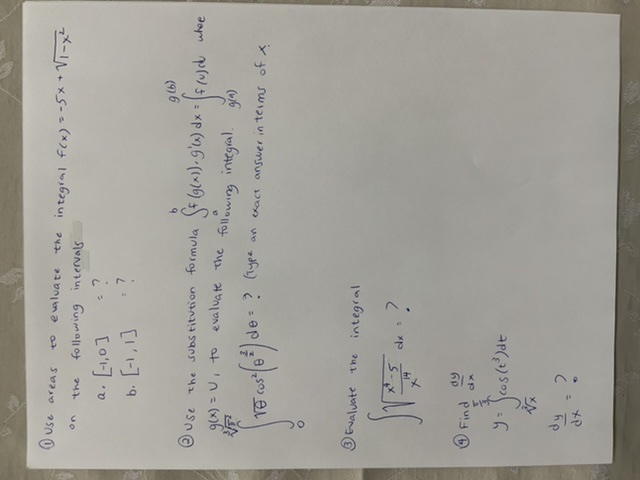 ① Use areas to evaluate the integral f(x) = -5x + √1-x²
on the following intervals
a. [-1,0] = ?
b. [-1,1] = ?
② Use the substitution formula ∫_a^b f(g(x)).g'(x) dx = ∫_{g(a)}^{g(b)} f(u)du whoe
g(x) = U, to evaluate the following integral.
∫_0 √θ cos²(θ^{3/2}) dθ = ? (Type an exact answer in terms of x.
③ Evaluate the integral
∫ √((x⁴-5)/x^14) dx = ?
④ Find dy/dx
y = ∫_{∛x} cos(t³)dt
dy/dx = ?